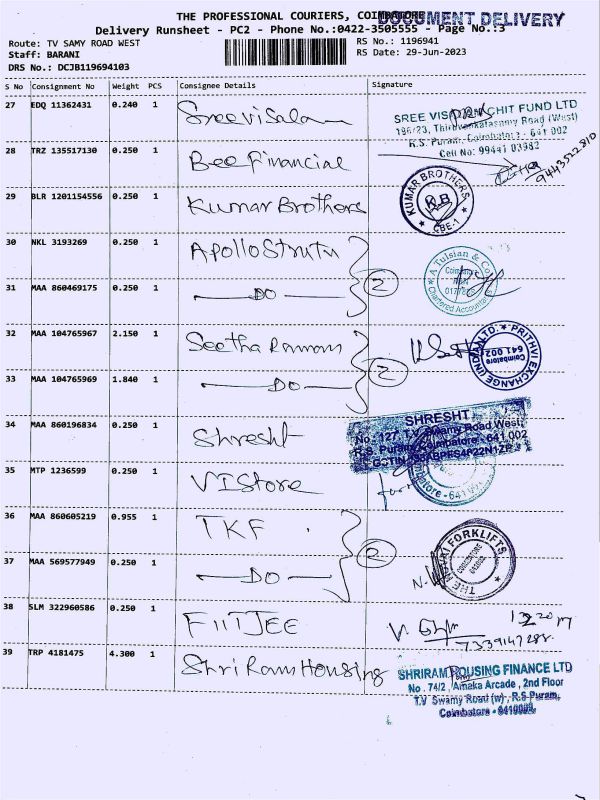 THE PROFESSIONAL COURIERS, COIMBATORE
DOCUMENT DELIVERY
Delivery Runsheet - PC2 - Phone No.:0422-3505555 - Page No.:3
Route: TV SAMY ROAD WEST
RS No.: 1196941
Staff: BARANI
RS Date: 29-Jun-2023
DRS No.: DCJB119694103
S No Consignment No Weight PCS Consignee Details Signature
27 EDQ 11362431 0.240 1 Sreevisala
SREE VISALAM CHIT FUND LTD
196/23, Thiruvenkatasamy Road (West)
R.S. Puram, Coimbatore - 641 002
Cell No: 99441 03982
28 TRZ 135517130 0.250 1 Bee Financial
9443522810
29 BLR 1201154556 0.250 1 Kumar Brothers
KUMAR BROTHERS
K.B
CBE-1
30 NKL 3193269 0.250 1 Apollo Strutu
A Tulsian & Co
Coimbatore
FRN
Chartered Accountants
31 MAA 860469175 0.250 1 DO 2
32 MAA 104765967 2.150 1 Seetha Ramam
PRITHVI EXCHANGE (INDIA) LTD.
Coimbatore
641 002
33 MAA 104765969 1.840 1 DO 2
34 MAA 860196834 0.250 1 Shresht
SHRESHT
No. 127, T.V Swamy Road West,
R.S. Puram, Coimbatore - 641 002
35 MTP 1236599 0.250 1 VIStore
Coimbatore-641
36 MAA 860605219 0.955 1 TKF
37 MAA 569577949 0.250 1 DO 2
FORKLIFTS
COIMBATORE
38 SLM 322960586 0.250 1 FIITJEE
7339147288
39 TRP 4181475 4.300 1 Shri Ram Housing
SHRIRAM HOUSING FINANCE LTD
No. 74/2, Amaka Arcade, 2nd Floor
T.V Swamy Road (w), R.S Puram,
Coimbatore - 641002